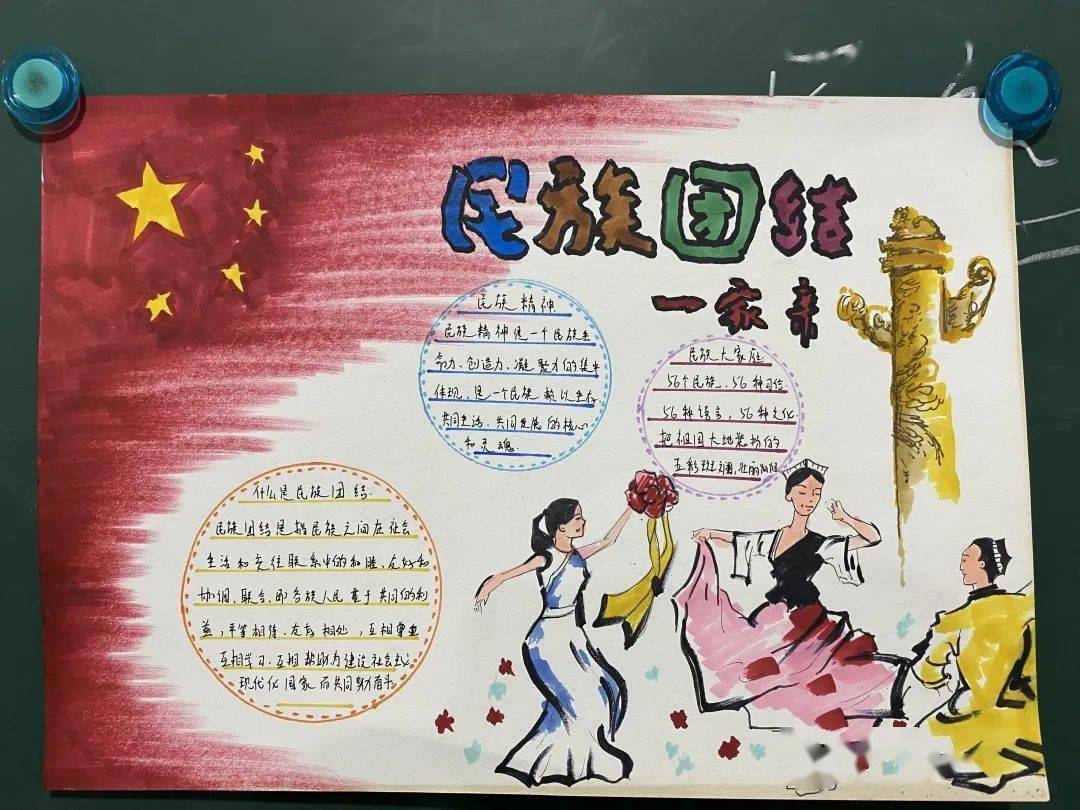 民族团结
一家亲
民族精神
民族精神是一个民族生
命力、创造力、凝聚力的集中
体现、是一个民族赖以生存、
共同生活、共同发展的核心
和灵魂.
民族大家庭
56个民族、56种习俗
56种语言，56种文化
把祖国大地装扮的
五彩斑斓,壮丽
什么是民族团结.
民族团结是指民族之间在社会
生活和交往联系中的和睦、友好和
协调、联合、即各族人民基于共同的利
益，平等相待、友好相处，互相尊重
互相学习、互相帮助为建设社会主义
现代化国家而共同努力奋斗